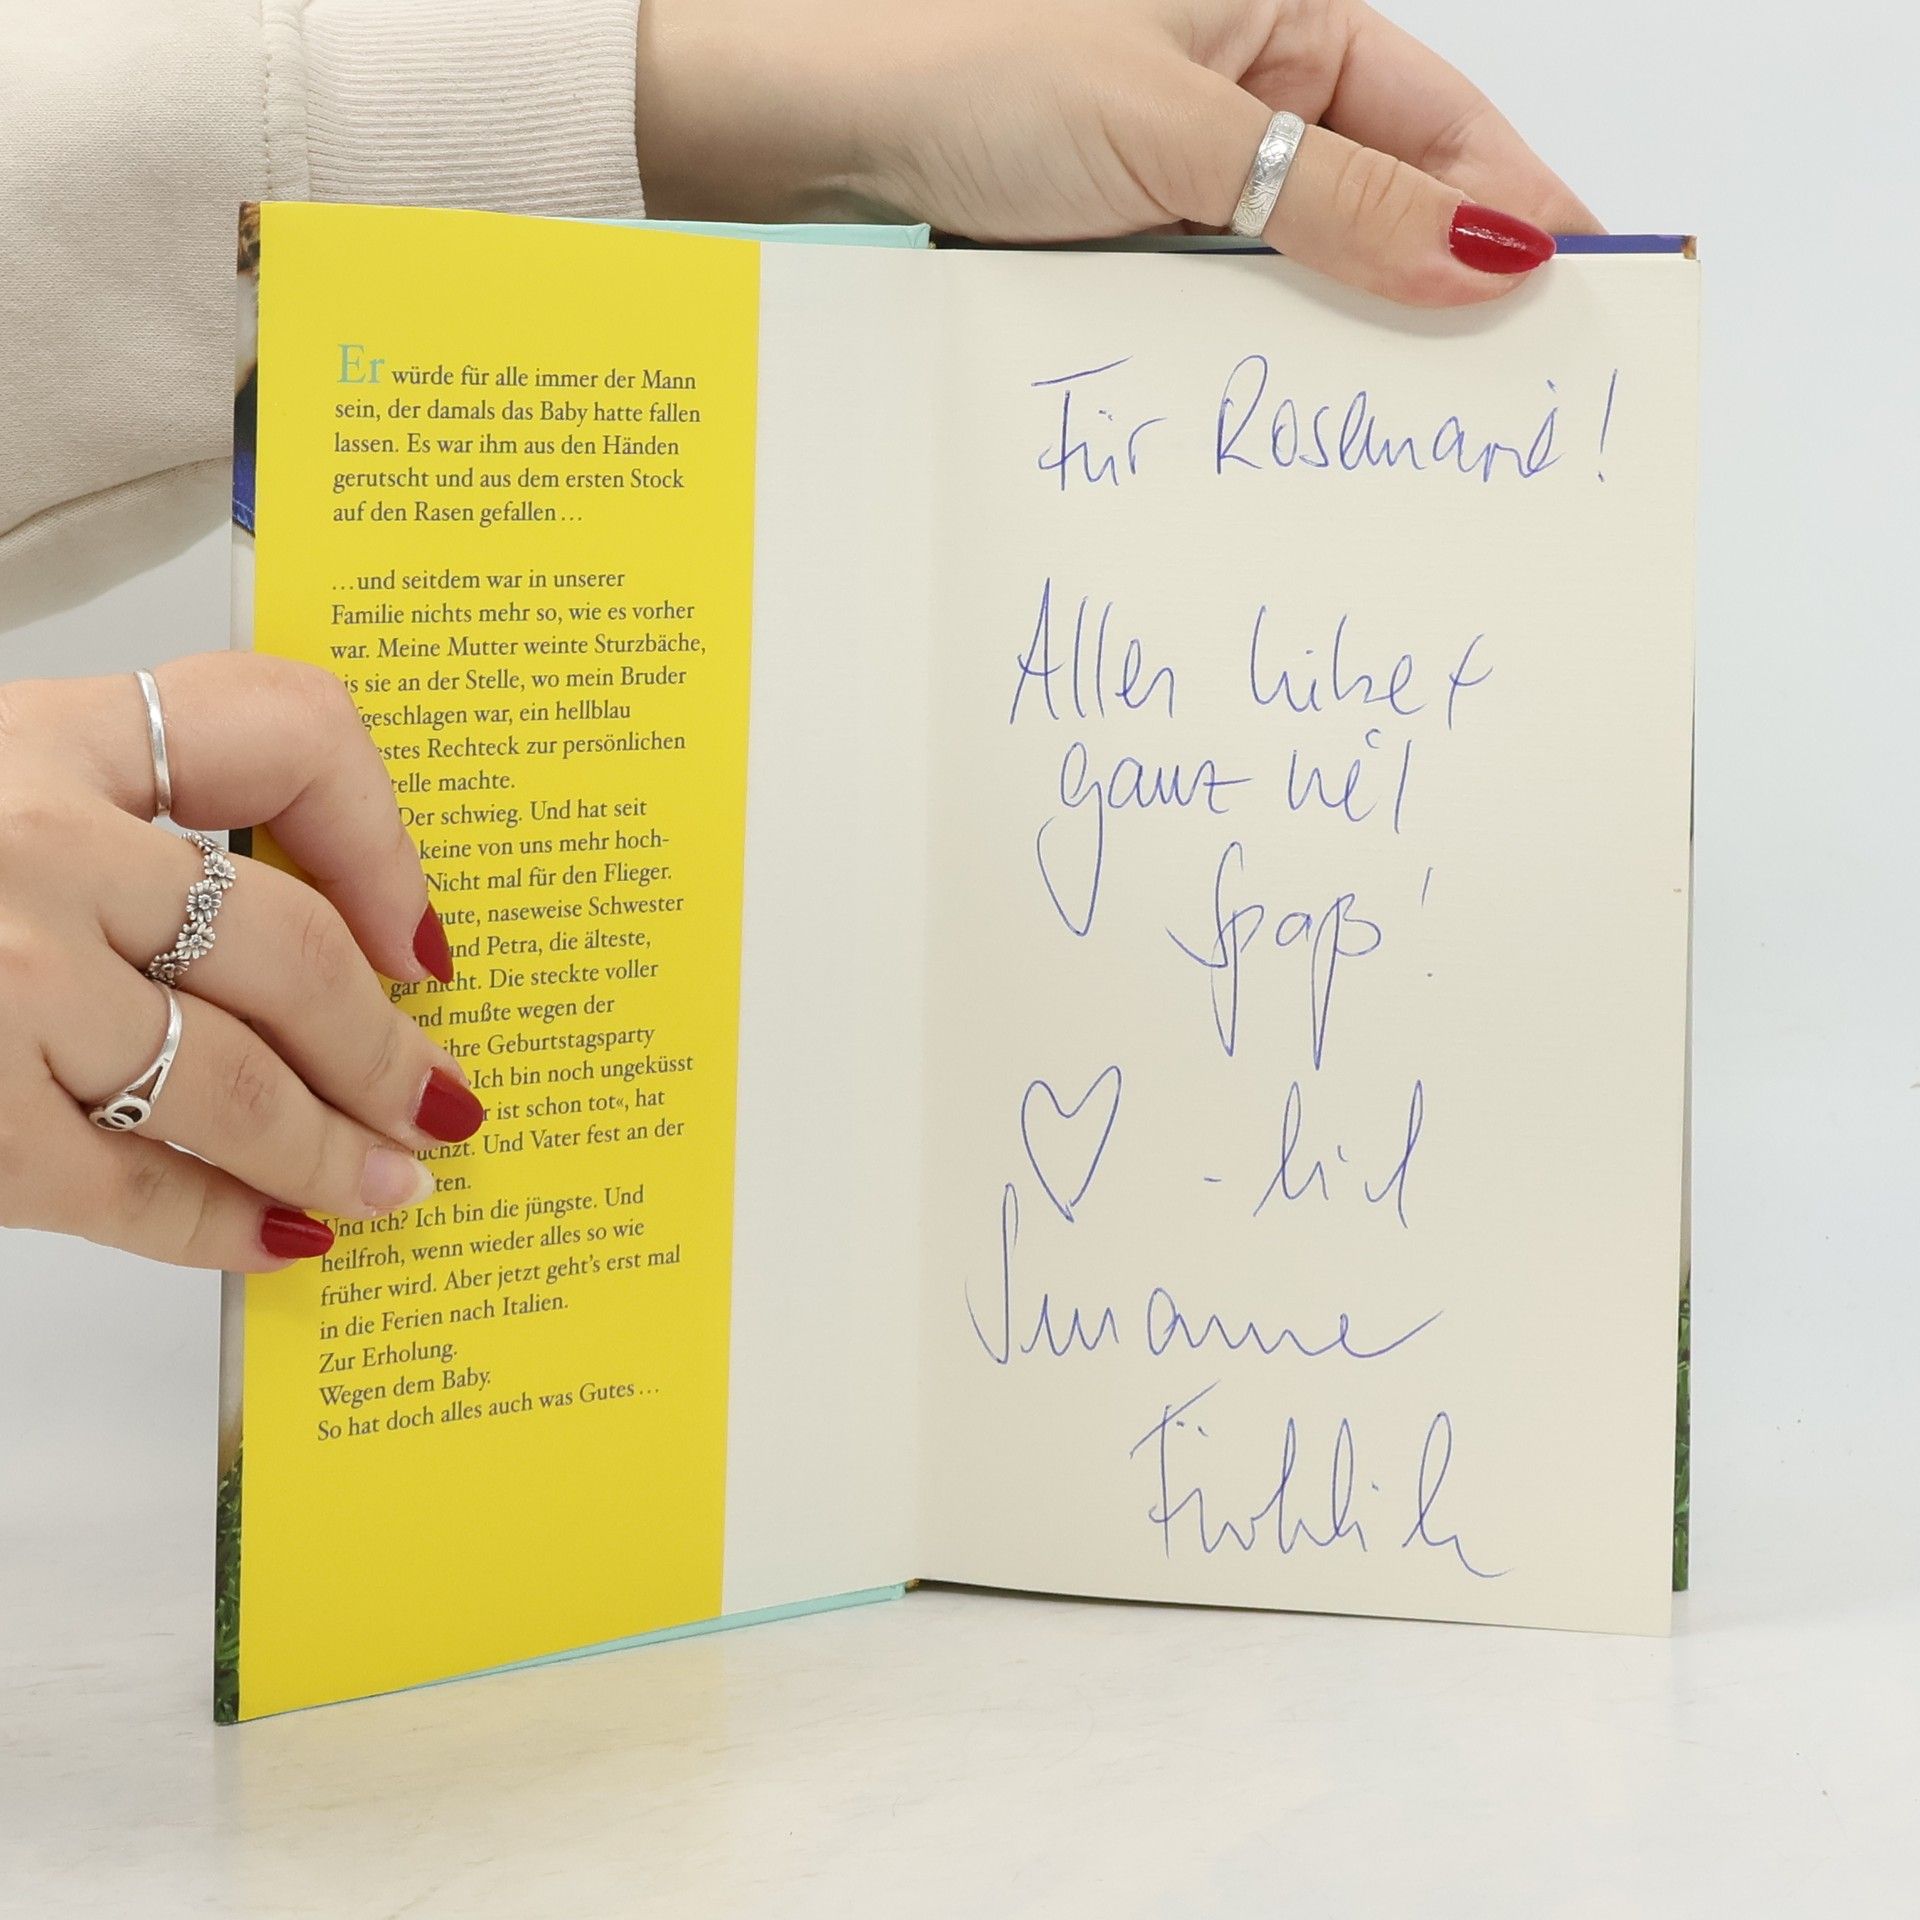 Er würde für alle immer der Mann
sein, der damals das Baby hatte fallen
lassen. Es war ihm aus den Händen
gerutscht und aus dem ersten Stock
auf den Rasen gefallen…
…und seitdem war in unserer
Familie nichts mehr so, wie es vorher
war. Meine Mutter weinte Sturzbäche,
sie an der Stelle, wo mein Bruder
geschlagen war, ein hellblau
estes Rechteck zur persönlichen
telle machte.
Der schwieg. Und hat seit
keine von uns mehr hoch-
Nicht mal für den Flieger.
aute, naseweise Schwester
und Petra, die älteste,
gar nicht. Die steckte voller
und mußte wegen der
ihre Geburtstagsparty
»Ich bin noch ungeküsst
r ist schon tot«, hat
uchzt. Und Vater fest an der
ten.
Und ich? Ich bin die jüngste. Und
heilfroh, wenn wieder alles so wie
früher wird. Aber jetzt geht's erst mal
in die Ferien nach Italien.
Zur Erholung.
Wegen dem Baby.
So hat doch alles auch was Gutes…
Für Rosemarie!
Alles Liebe +
ganz viel
Spaß!
♡ - lich
Susanne
Fröhlich